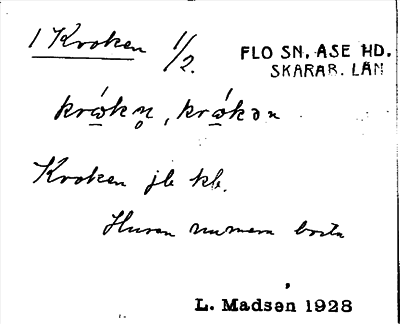 1 Kroken 1/2.
FLO SN, ÅSE HD.
SKARAB. LÄN
krǻkn̥, krǻkən
Kroken jb kb.
Husen numera borta
L. Madsen 1928